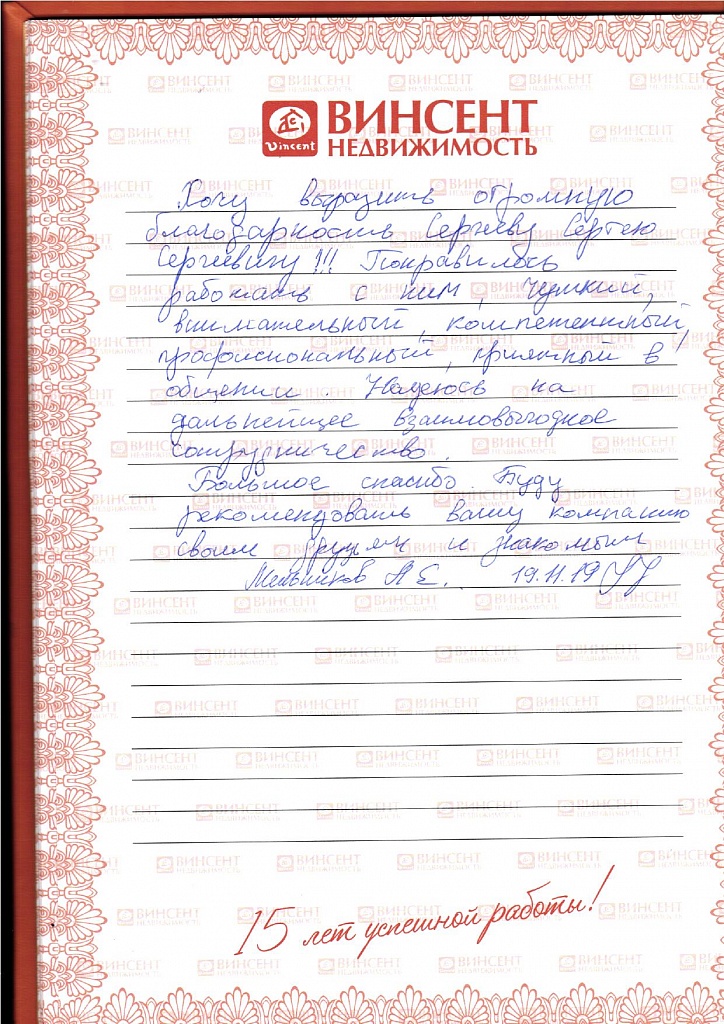 Vincent
ВИНСЕНТ
НЕДВИЖИМОСТЬ
Хочу выразить огромную
благодарность Сергееву Сергею
Сергеевичу!!! Понравилось
работать с ним, чуткий,
внимательный, компетентный,
профессиональный, приятный в
общении. Надеюсь на
дальнейшее взаимовыгодное
сотрудничество.
Большое спасибо. Буду
рекомендовать Вашу компанию
своим друзьям и знакомым
Мельников А Е. 19.11.19
15 лет успешной работы!